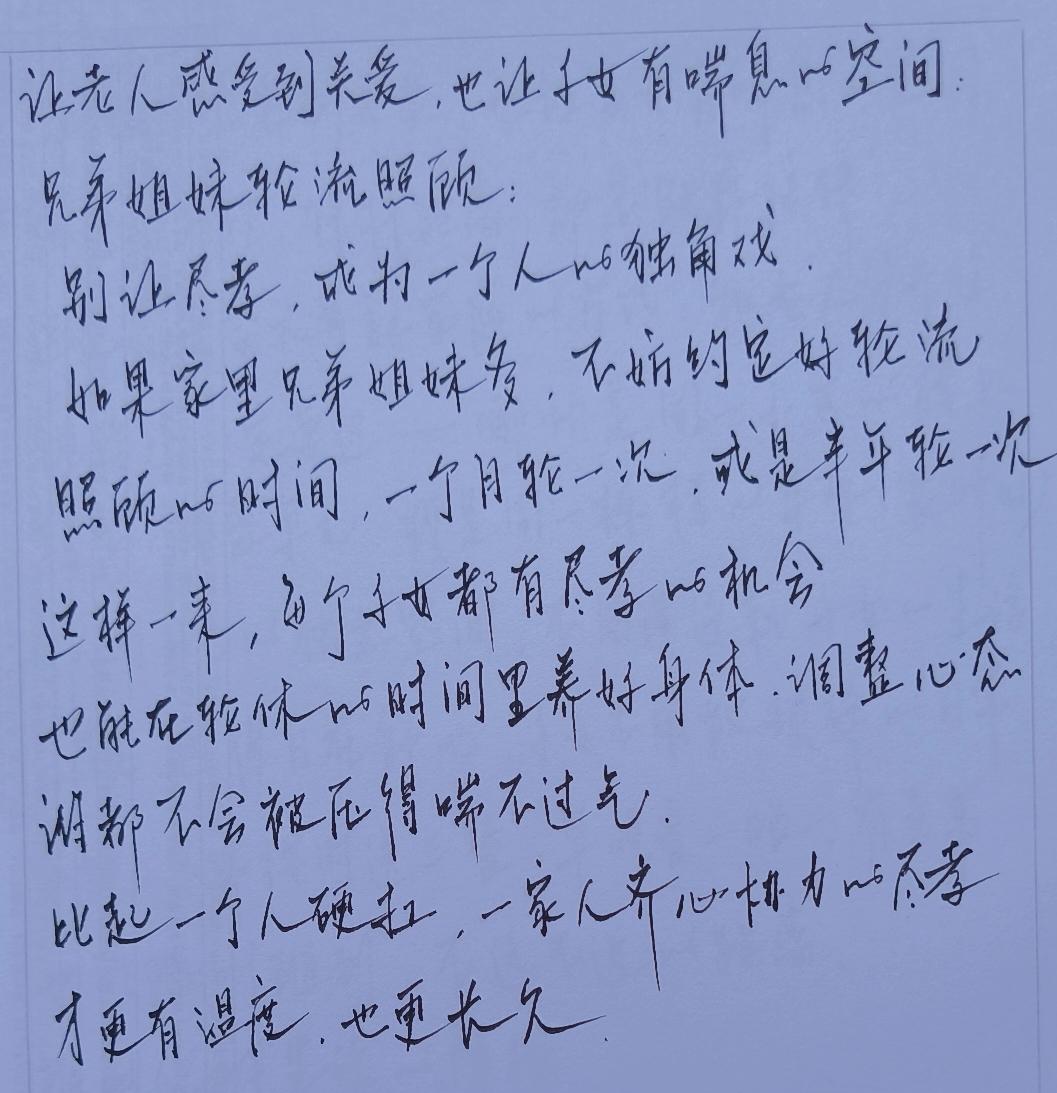 让老人感受到关爱，也让子女有喘息的空间：
兄弟姐妹轮流照顾：
别让尽孝，成为一个人的独角戏．
如果家里兄弟姐妹多，不妨约定好轮流
照顾的时间，一个月轮一次，或是半年轮一次
这样一来，每个子女都有尽孝的机会
也能在轮休的时间里养好身体．调整心态
谁都不会被压得喘不过气．
比起一个人硬扛，一家人齐心协力的尽孝
才更有温度．也更长久．